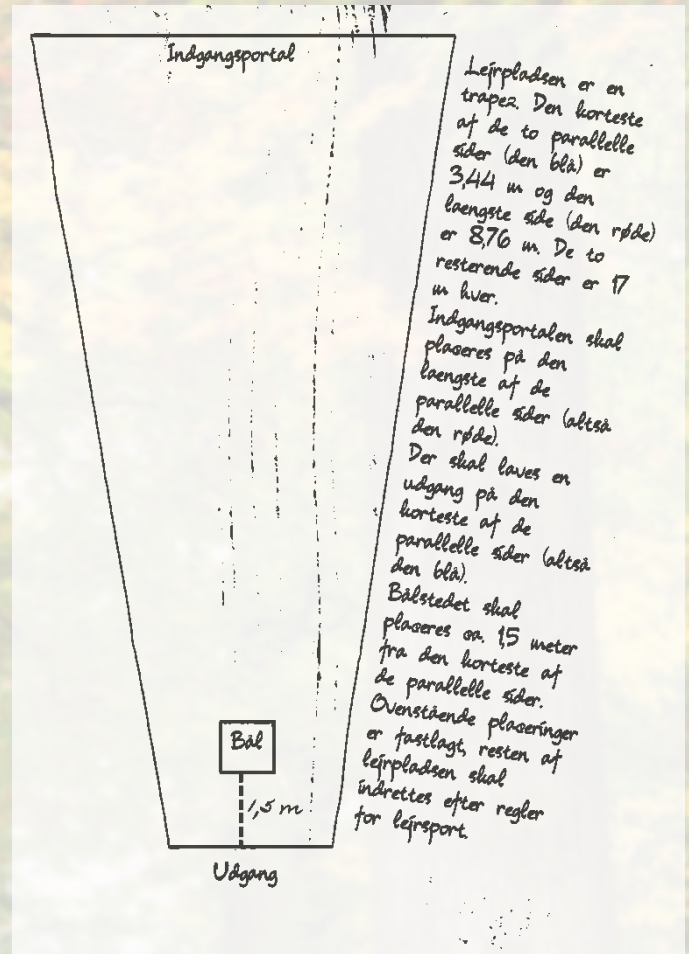 Indgangsportal
Lejrpladsen er en
trapez. Den korteste
af de to parallelle
sider (den blå) er
3,44 m og den
laengste side (den røde)
er 8,76 m. De to
resterende sider er 17
m hver.
Indgangsportalen skal
placeres på den
laengste af de
parallelle sider (altså
den røde).
Der skal laves en
udgang på den
korteste af de
parallelle sider (altså
den blå).
Bålstedet skal
placeres ca. 1,5 meter
fra den korteste af
de parallelle sider.
Ovenstående placeringer
er fastlagt, resten af
lejrpladsen skal
indrettes efter regler
for lejrsport.
Bål
1,5 m
Udgang